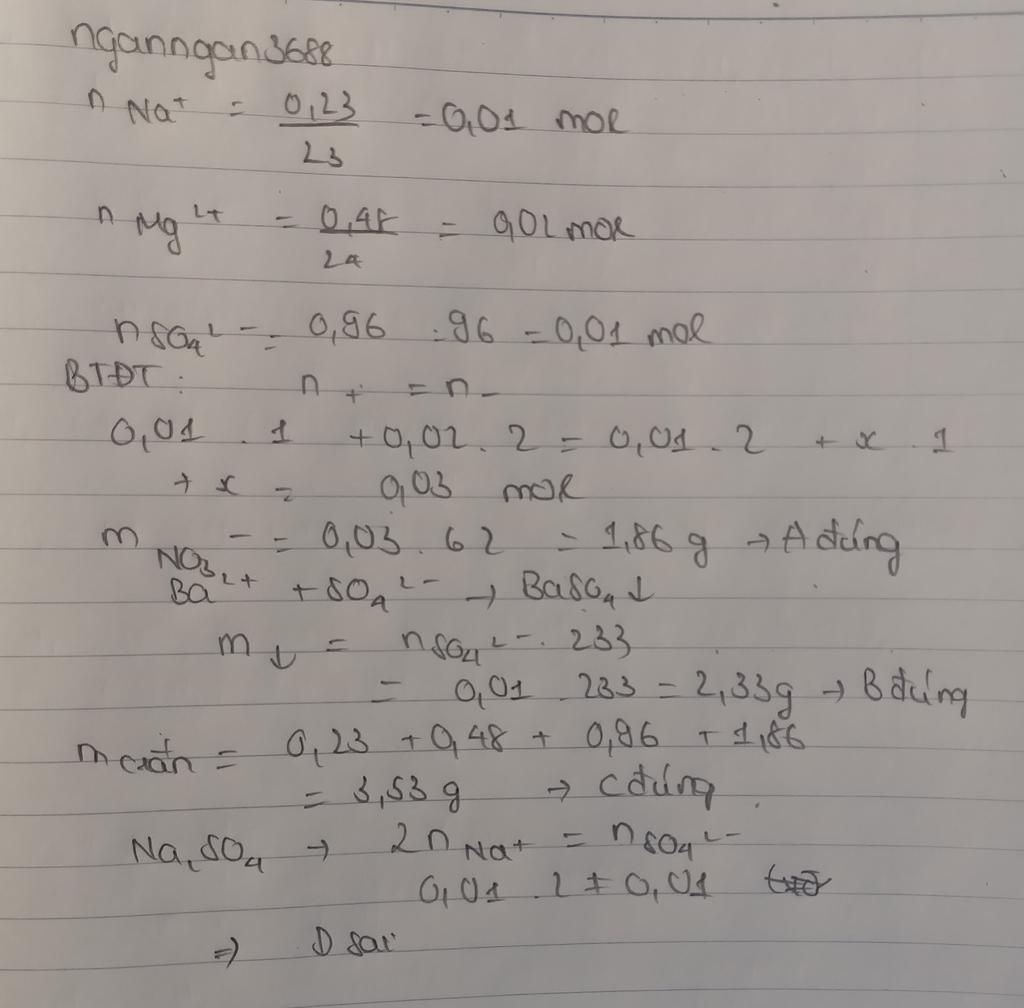 nganngan3688
n Na⁺ = 0,23/23 = 0,01 mol
n Mg²⁺ = 0,48/24 = 0,02 mol
n SO₄²⁻ = 0,96 : 96 = 0,01 mol
BTĐT : n + = n -
0,01 . 1 + 0,02 . 2 = 0,01 . 2 + x . 1
→ x = 0,03 mol
m NO₃⁻ = 0,03 . 62 = 1,86 g → A đúng
Ba²⁺ + SO₄²⁻ → BaSO₄↓
m↓ = n SO₄²⁻ . 233
= 0,01 . 233 = 2,33g → B đúng
m cắn = 0,23 + 0,48 + 0,96 + 1,86
= 3,53 g → C đúng
Na₂SO₄ → 2n Na⁺ = n SO₄²⁻
0,01 . 2 ≠ 0,01
⇒ D sai